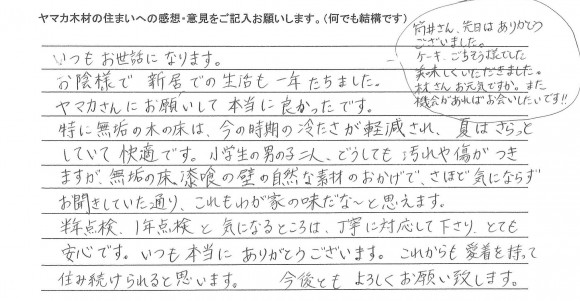 ヤマカ木材の住まいへの感想・意見をご記入お願いします。(何でも結構です)
筒井さん、先日はありがとう
ございました。
ケーキ、ごちそう様でした
美味しくいただきました。
林さんお元気ですか。また
機会があればお会いしたいです!!
いつもお世話になります。
お陰様で新居での生活も一年たちました。
ヤマカさんにお願いして本当に良かったです。
特に無垢の木の床は、今の時期の冷たさが軽減され、夏はさらっと
していて快適です。小学生の男の子二人、どうしても汚れや傷がつき
ますが、無垢の床、漆喰の壁の自然な素材のおかげで、さほど気にならず
お聞きしていた通り、これもわが家の味だな~と思えます。
半年点検、1年点検と気になるところは、丁寧に対応して下さり、とても
安心です。いつも本当にありがとうございます。これからも愛着を持って
住み続けられると思います。 今後ともよろしくお願い致します。